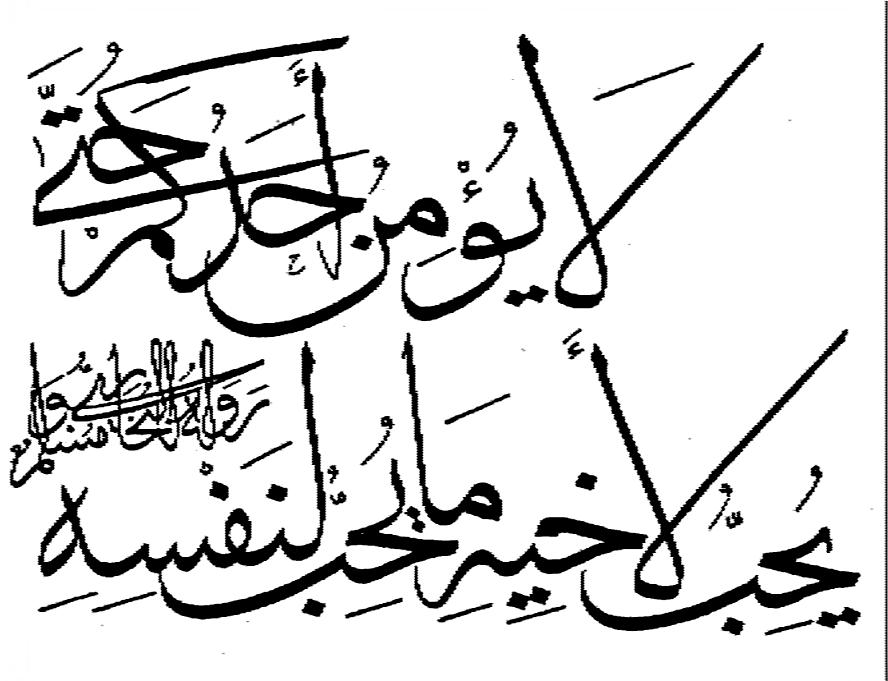 لَا يُؤْمِنُ أَحَدُكُمْ حَتَّىٰ
يُحِبَّ لِأَخِيهِ مَا يُحِبُّ لِنَفْسِهِ
رَوَاهُ البخاري ومسلم